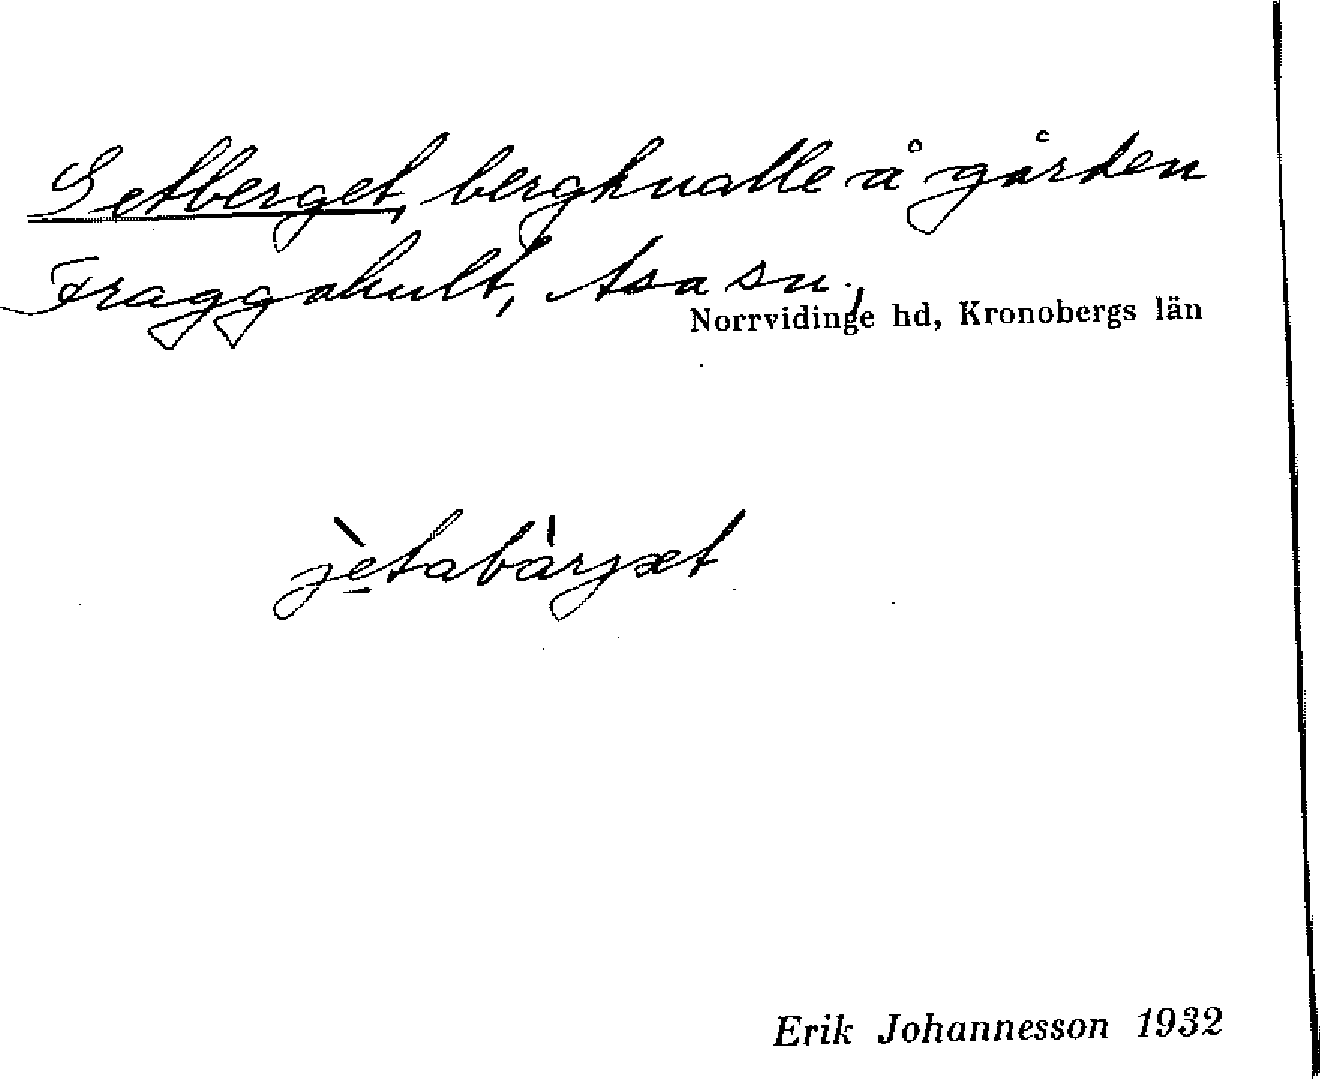 Getberget, bergknalle å gården
Fraggahult, Asa sn.,
Norrvidinge hd, Kronobergs län
jètabárjæt
Erik Johannesson 1932